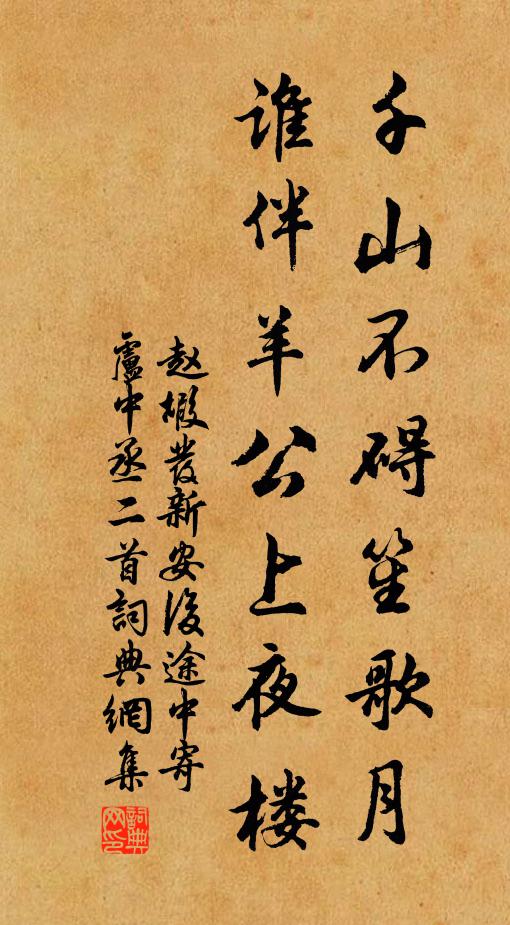 千山不碍笙歌月
谁伴羊公上夜楼
赵嘏發新安後途中寄
盧中丞二首詞典網集
詞典网印